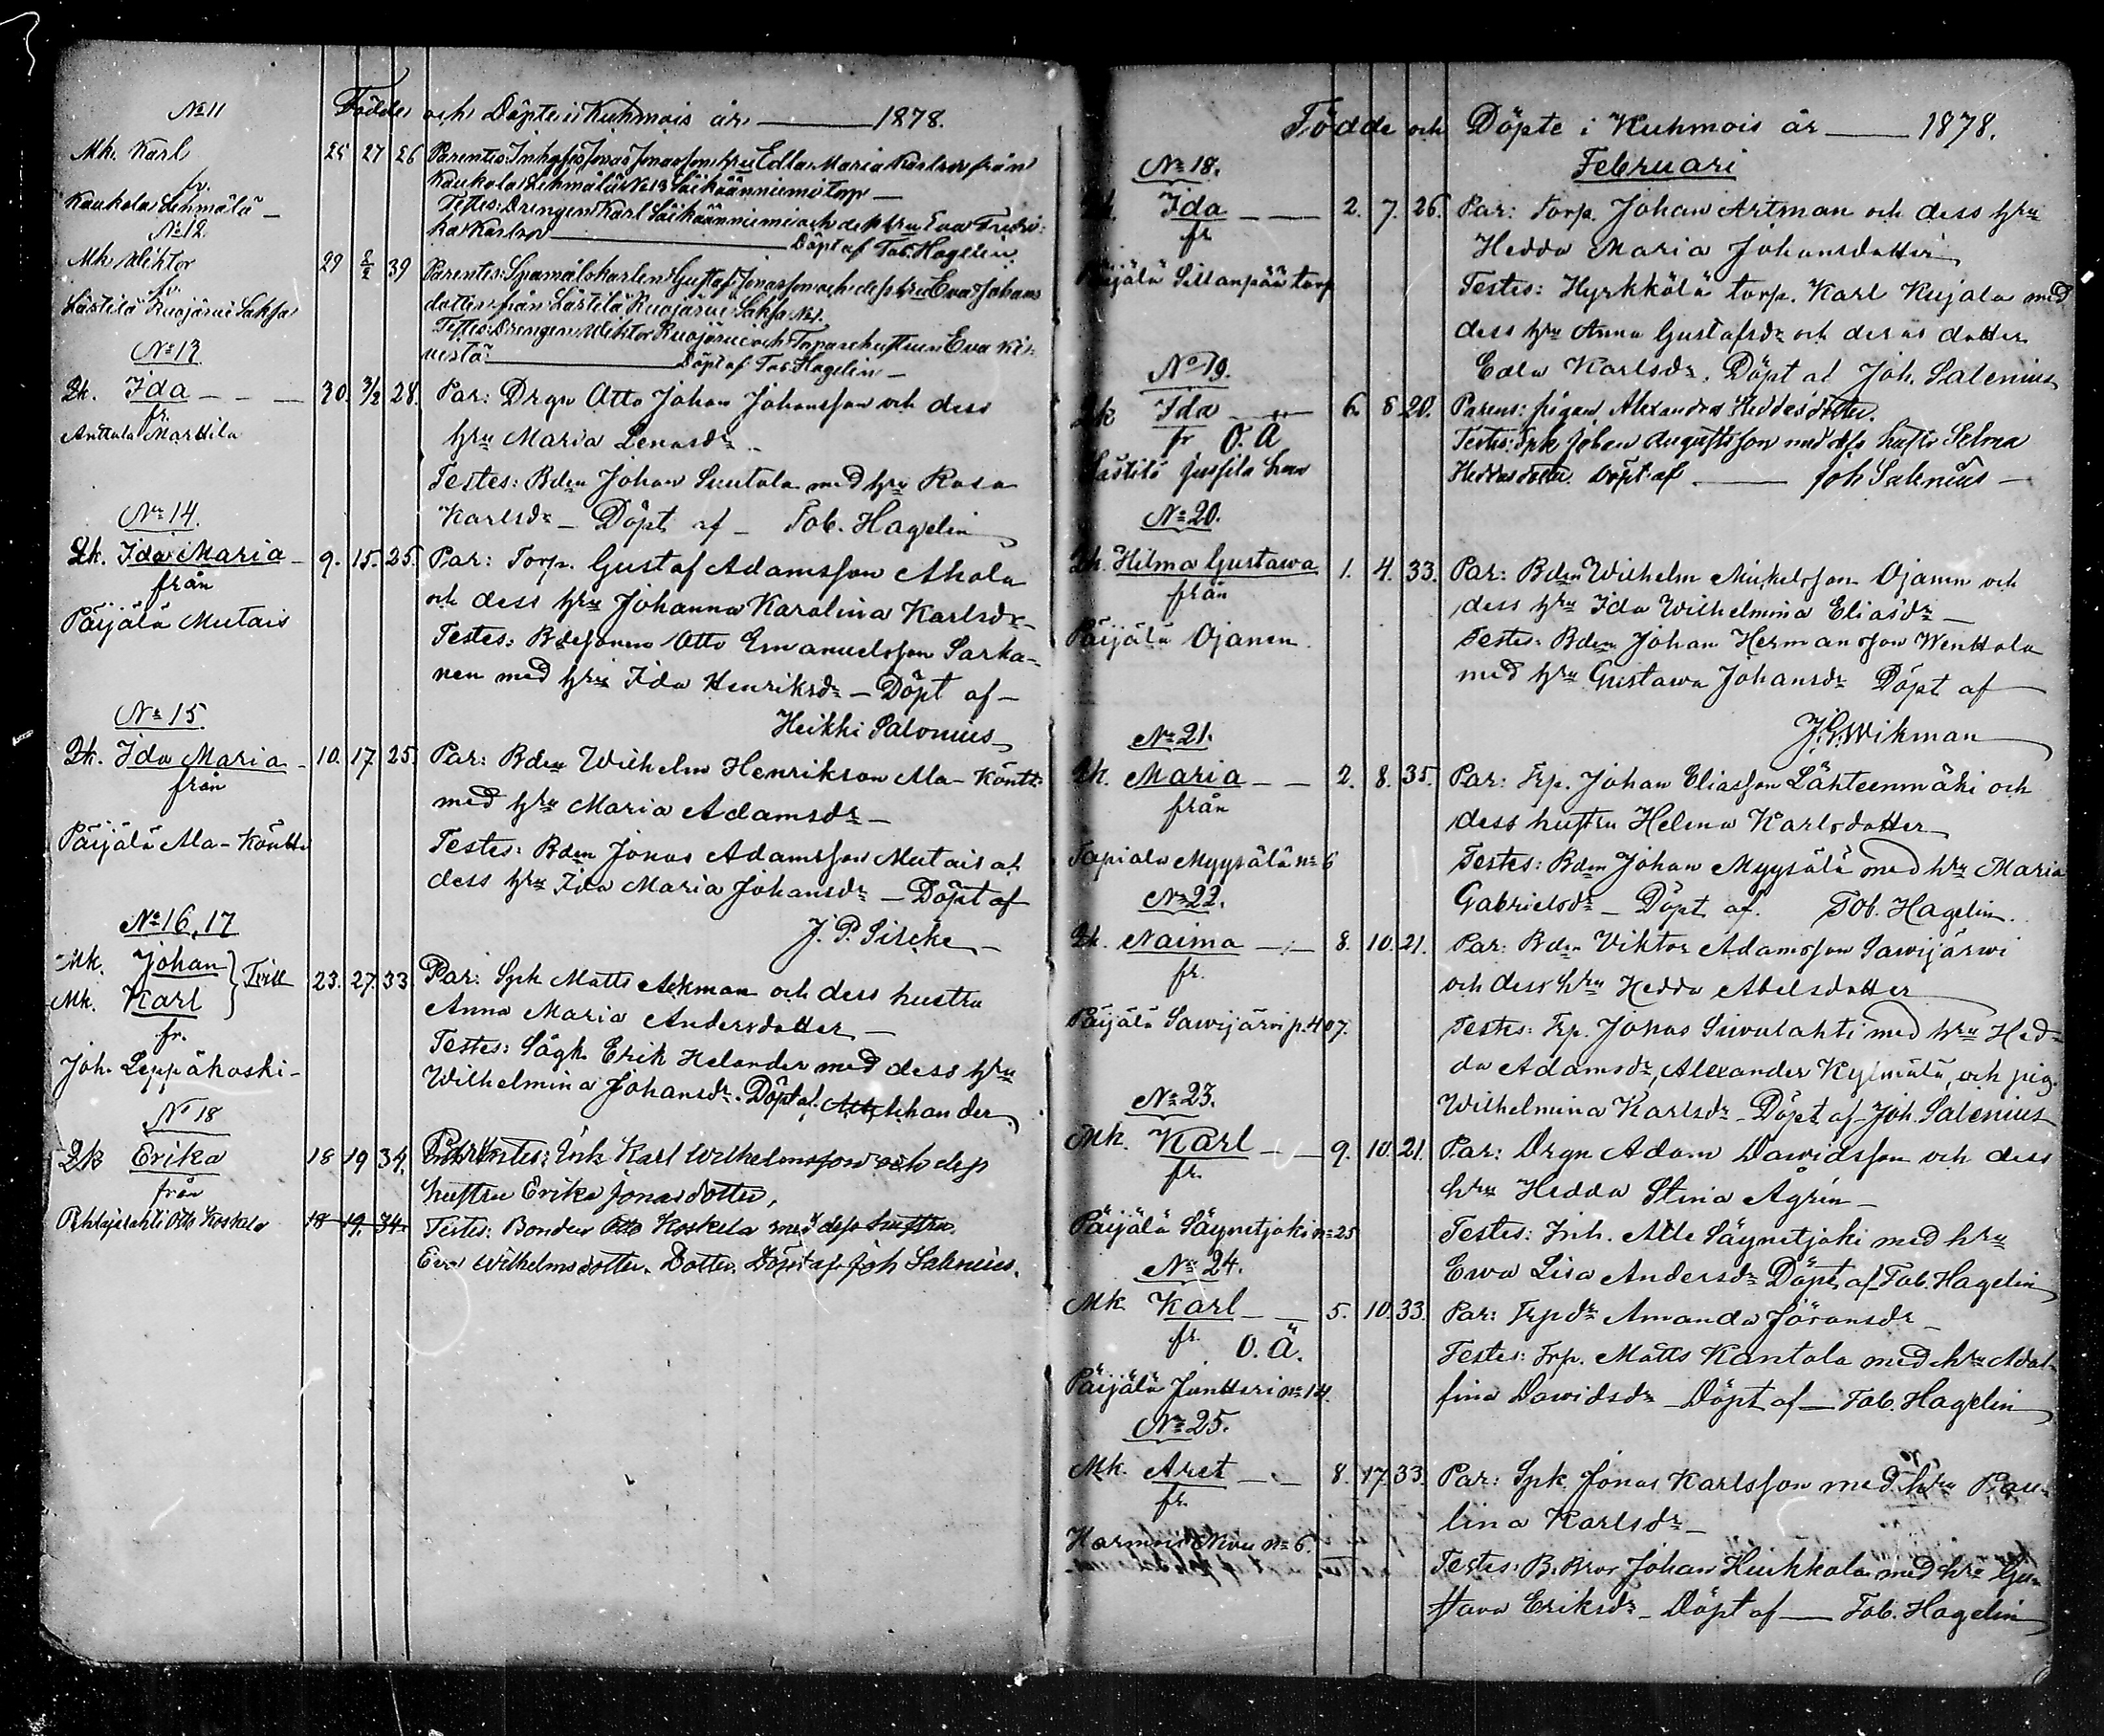 Födde och Döpte i Kuhmois år 1878.
№ 11
Mk. Karl 25 27 26 Parentes: Inhyses Jonas Jonasson hru Edla Maria Karlsdr från
fr.
Kaukola Lehmälä № 13 Säikäänniemi torp —
Kaukola Lehmälä —
Testes: Drengen Karl Säikäänniemi och dess hru Eva Fredri-
ka Karlsdr — Döpt af Tob. Hagelin.
№ 12
Mk. Wiktor 29 8/2 39 Parentes: Spanmålskarlen Gustaf Jonasson och dess hru Eva Johans
fr.
dotter från Lästilä Ruojärvi Saksa № 1.
Lästilä Ruojärvi Saksa
Testes: Drengen Wiktor Ruojärvi och Torparehustrun Eva
Döpt af Tob. Hagelin —
№ 13
Qk. Ida — — — 30. 3/2 28. Par: Drgn Otto Johan Johansson och dess
fr.
Anttola Marttila
hru Maria Lenasdr —
Testes: Bden Johan Suutala med hru Rosa
Karlsdr — Döpt af — Tob. Hagelin
№ 14.
Qk. Ida Maria — 9. 15. 25. Par: Torp. Gustaf Adamsson Ahola
från
och dess hru Johanna Karolina Karlsdr —
Päijälä Mutais
Testes: Bdesonen Otto Emanuelsson Sarka-
nen med hru Ida Henriksdr — Döpt af —
Heikki Salonius
№ 15
Qk. Ida Maria — 10. 17. 25. Par: Bden Wilhelm Henrikson Ala-Köntti
från
med hru Maria Adamsdr —
Päijälä Ala-Köntti
Testes: Bden Jonas Adamsson Mutais o.
dess hru Ida Maria Johansdr — Döpt af
J. P. Sirelie —
№ 16, 17
Mk. Johan } Tvill 23. 27. 33. Par: Spk Matts Aekman och dess hustru
Mk. Karl
Anna Maria Andersdotter —
fr.
Joh. Leppäkoski —
Testes: Sågk. Erik Helander med dess hru
Wilhelmina Johansdr. Döpt af Lihander
№ 18
Qk Erika 18 19 34. Parentes: Inh Karl Wilhelmsson och dess
från
hustru Erika Jonasdotter,
Pihlajalahti Otto Koskela 18 19. 34. Testes: Bonden Otto Koskela med dess hustru
Eva Wilhelmsdotter. Dotter. Döpt af Joh Salenius.
Födde och Döpte i Kuhmois år — 1878.
Februari
№ 18.
Qk. Ida — — 2. 7. 26. Par: Torp. Johan Artman och dess hru
fr
Hedda Maria Johansdotter
Päijälä Sillanpää torp
Testes: Hyrkkölä torp. Karl Kujala med
dess hru Anna Gustafsdr och deras dotter
Edla Karlsdr. Döpt af Joh. Salenius
№ 19.
Qk Ida — 6. 8 20. Parens: pigan Alexandra Heddasdotter.
fr O. Ä
Testes: Spk Johan Augustsson med dess hustr Selma
Lästilä Jussila
Heddasdotter. Döpt af — Joh Salenius —
№ 20.
Qk. Hilma Gustawa 1. 4. 33. Par: Bden Wilhelm Mickelsson Ojanen och
från
dess hru Ida Wilhelmina Eliasdr —
Päijälä Ojanen
Testes: Bden Johan Hermansson Wenttola
med hru Gustawa Johansdr Döpt af
J. G. Wikman
№ 21.
Qk. Maria — — 2. 8. 35. Par: Trp. Johan Eliasson Lähteenmäki och
från
dess hustru Helena Karlsdotter
Tapiala Myysälä № 6
Testes: Bden Johan Myysälä med hru Maria
Gabrielsdr — Döpt af. Tob. Hagelin.
№ 22.
Qk. Naima — — 8. 10. 21. Par: Bden Viktor Adamsson Sawijärwi
fr.
och dess hru Hedda Abelsdotter
Päijälä Sawijärwi p. 407.
Testes: Trp. Jonas Siwulahti med hru Hed-
da Adamsdr, Alexander Kylmälä, och pig.
Wilhelmina Karlsdr — Döpt af Joh. Salenius
№ 23.
Mk. Karl — — 9. 10. 21. Par: Drgn Adam Dawidsson och dess
fr.
hru Hedda Stina Agrén —
Päijälä Säynetjoki № 25
Testes: Inh. Alle Säynetjoki med hru
Ewa Lisa Andersdr Döpt af Tob. Hagelin
№ 24.
Mk Karl — — 5. 10. 33. Par: Trpdr Amanda Jöransdr —
fr. O. Ä.
Testes: Trp. Matts Kantola med hru Adol-
Päijälä Juntteri № 14.
fina Dawidsdr — Döpt af — Tob. Hagelin
№ 25.
Mk. Aret — — 8. 17. 33. Par: Spk. Jonas Karlsson med hru Pau-
fr.
lina Karlsdr —
Harmois Nivu № 6.
Testes: B. Bror Johan Huikkola med hru Gu-
stava Eriksdr — Döpt af — Tob. Hagelin